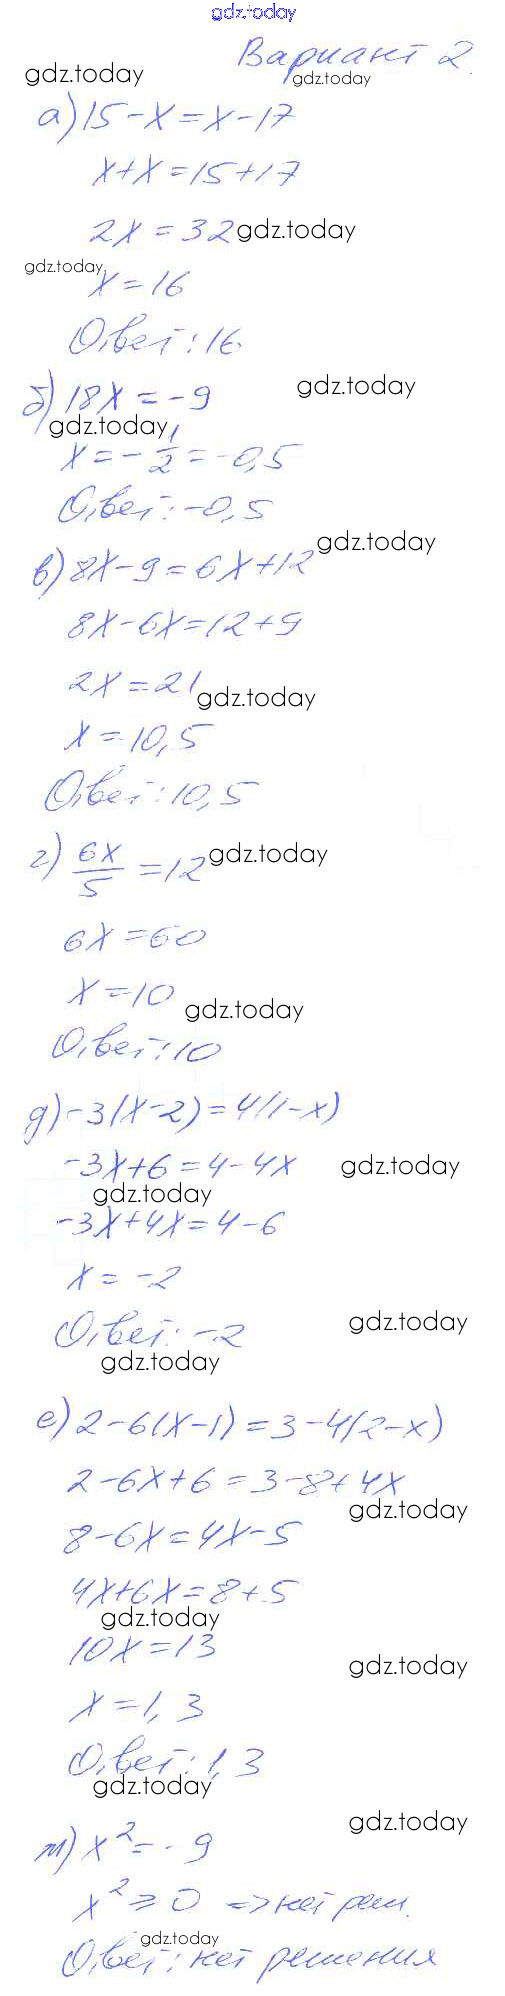 gdz.today
Вариант 2.
gdz.today gdz.today
а) 15-x=x-17
x+x=15+17
2x=32 gdz.today
gdz.today
x=16
Ответ: 16
б) 18x=-9 gdz.today
gdz.today
x=-1/2=-0,5
Ответ: -0,5
gdz.today
в) 8x-9=6x+12
8x-6x=12+9
2x=21 gdz.today
x=10,5
Ответ: 10,5
г) 6x/5=12 gdz.today
6x=60
x=10 gdz.today
Ответ: 10
д) -3(x-2)=4(1-x)
-3x+6=4-4x gdz.today
gdz.today
-3x+4x=4-6
x=-2
Ответ: -2 gdz.today
gdz.today
е) 2-6(x-1)=3-4(2-x)
2-6x+6=3-8+4x
gdz.today
8-6x=4x-5
4x+6x=8+5
gdz.today
10x=13 gdz.today
x=1,3
Ответ: 1,3
gdz.today
gdz.today
m) x²=-9
x²≥0 => нет реш.
gdz.today
Ответ: нет решения